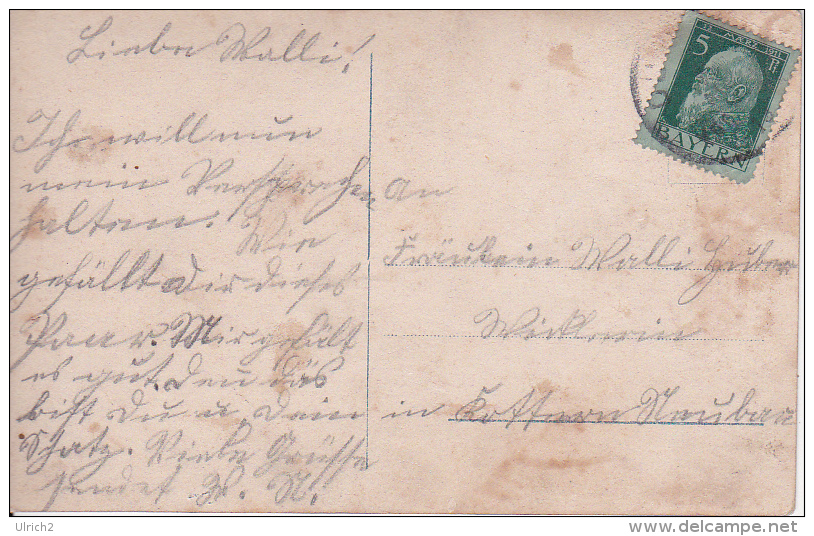 Liebe Walli!
Ich will nun
mein Versprechen
halten. Wie
gefällt dir dieses
Paar. Mir gefällt
es gut den das
bist du u. Dein
Schatz. Viele Grüsse
sendet W. N.
An
Fräulein Walli Huber
Wicklerin
in Kottern Neubau
12. MÄRZ 1911
5 P
BAYERN
Ulrich2
www.delcampe.net